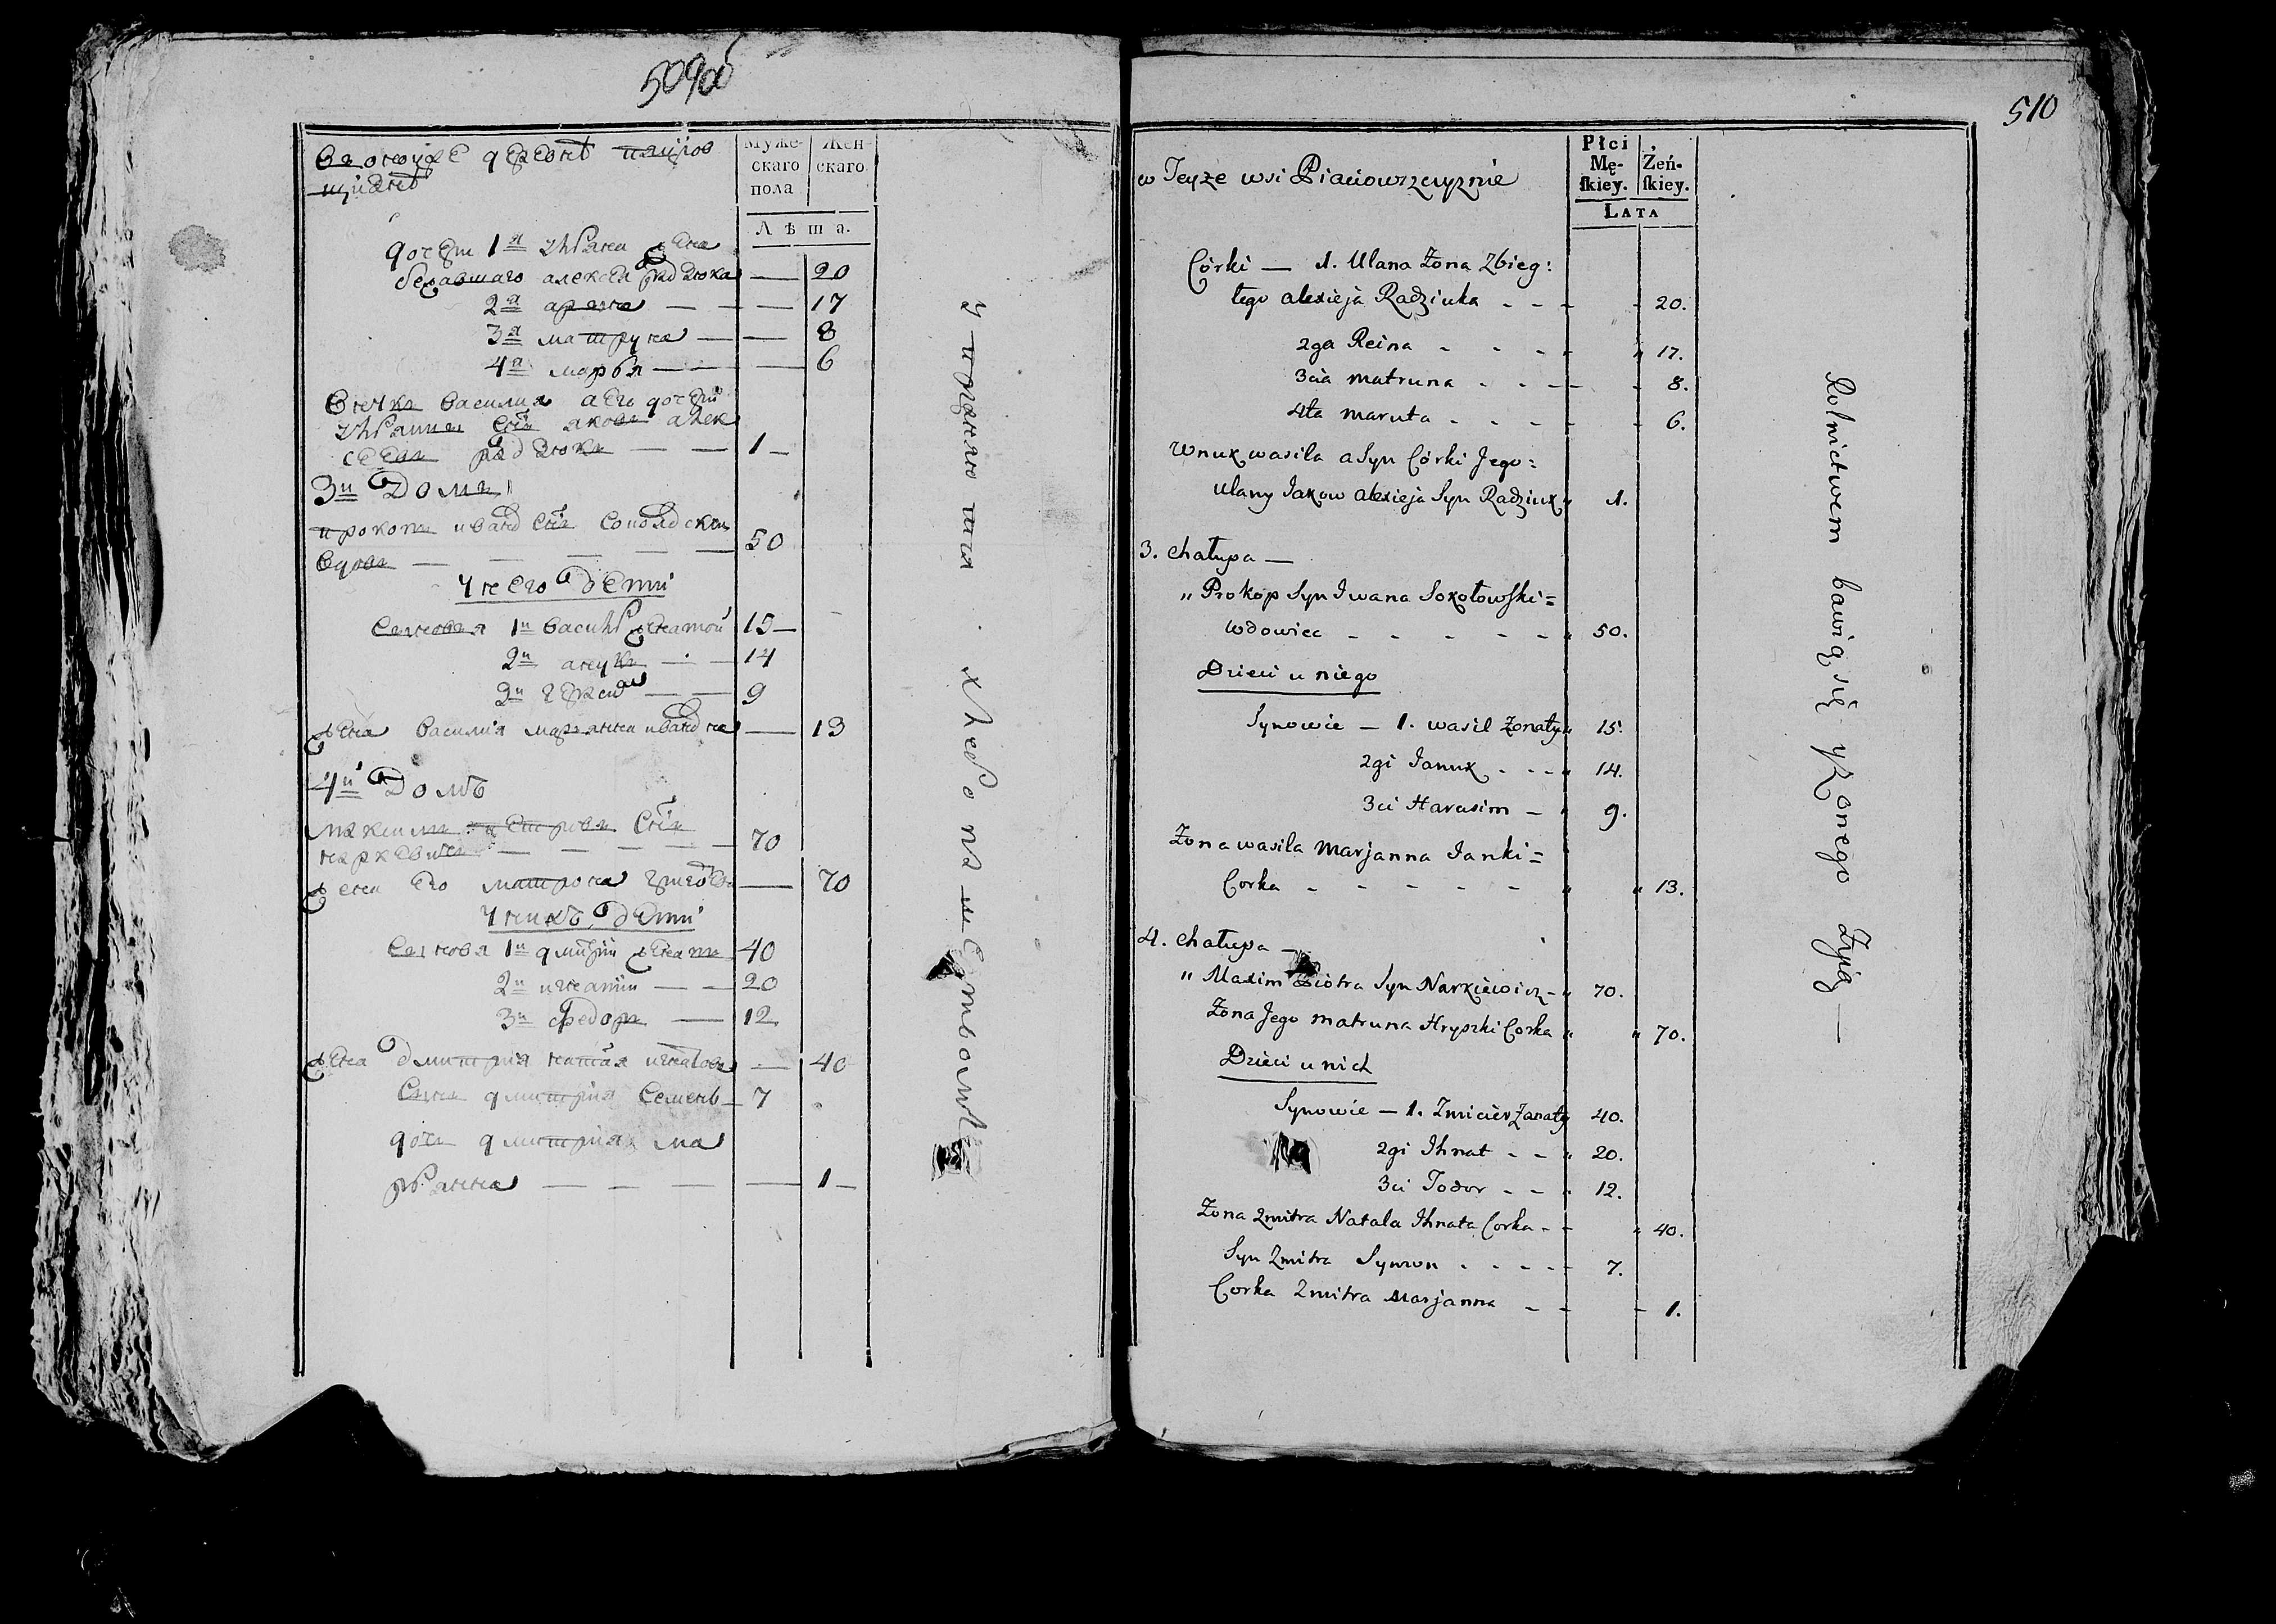 509об
Мужескаго пола
Женскаго
Лѣта.
дочери 1я женка
бежавшаго алексея радзюка — 20
2я — — 17
3я матруна — — 8
4я марья — — 6
внукъ василия а его дочери
сынъ яковъ алек
сеевъ радзюкъ — — 1 —
3й Домъ
прокопъ ивановъ сынъ соколовский
вдовъ — — — — 50
у него дети
сыновья 1й василь женатой 15 —
2й янукъ — — 14
3й — — 9
жена василия марьяна иванова — 13
4й Домъ
максимъ петровъ сынъ
наркевичъ — — — — 70
жена его матрона — 70
у нихъ дети
сыновья 1й дмитрий женатъ 40
2й игнатий — — 20
3й федоръ — 12
жена дмитрия наталя игнатова — 40
сынъ дмитрия семенъ — 7
дочь дмитрия ма
рьяна — — — — 1 —
510
w Teyże wsi Piaciowszczyznie
Płci
Mę-
skiey.
Żeń-
skiey.
LATA
Córki — 1. Ulana Żona Zbieg:
łego alexieja Radziuka - - - - 20.
2ga Reina - - - - " 17.
3cia matruna - - - - - 8.
4ta maruta - - - - - 6.
Wnuk wasila a Syn Córki Jego:
Ulany Jakow alexieja Syn Radziuk " 1.
3. chałupa —
" Prokop Syn Iwana Sokołowski =
wdowiec - - - - - " 50.
Dzieci u niego
Synowie — 1. wasil Żonaty " 15.
2gi Januk - - - " 14.
3ci Harasim — " 9.
Żona wasila Marjanna Janki =
Corka - - - - - " " 13.
4. chałupa —
" Maxim Piotra Syn Narkiewicz - " 70.
Żona Jego matruna Hryszki Corka " " 70.
Dzieci u nich
Synowie — 1. Zmicier Żonaty 40.
2gi Ihnat - - " 20.
3ci Todor - - " 12.
Żona Zmitra Natala Ihnata Corka - - " 40.
Syn Zmitra Symon - - - - - 7.
Corka Zmitra Marjanna - - - 1.
Rolnictwem bawią się y z onego Żyią —